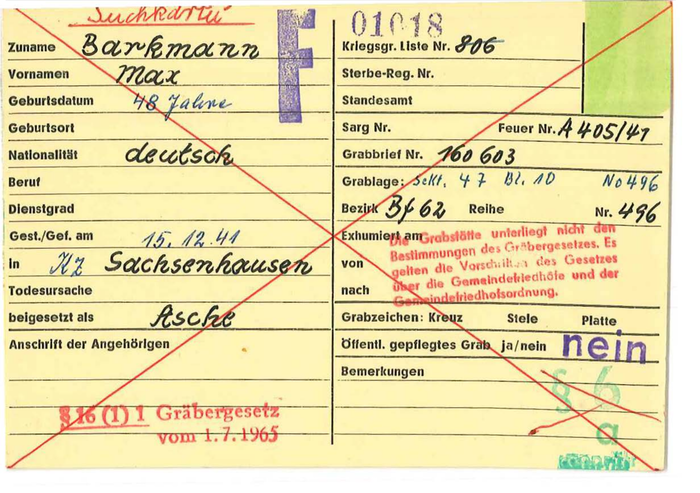 Suchkarte
Zuname Barkmann
Vornamen Max
Geburtsdatum 48 Jahre
Geburtsort
Nationalität deutsch
Beruf
Dienstgrad
Gest./Gef. am 15.12.41
in KZ Sachsenhausen
Todesursache
beigesetzt als Asche
Anschrift der Angehörigen
§ 16 (1) 1 Gräbergesetz
vom 1.7.1965
F
01018
Kriegsgr. Liste Nr. 806
Sterbe-Reg. Nr.
Standesamt
Sarg Nr. Feuer Nr. A 405/41
Grabbrief Nr. 160 603
Grablage: Sekt. 47 Bl. 10 No 496
Bezirk Bf 62 Reihe Nr. 496
Exhumiert am
von
nach
Die Grabstätte unterliegt nicht den
Bestimmungen des Gräbergesetzes. Es
gelten die Vorschriften des Gesetzes
über die Gemeindefriedhöfe und der
Gemeindefriedhofsordnung.
Grabzeichen: Kreuz Stele Platte
Öffentl. gepflegtes Grab ja/nein nein
Bemerkungen
§ 6
a